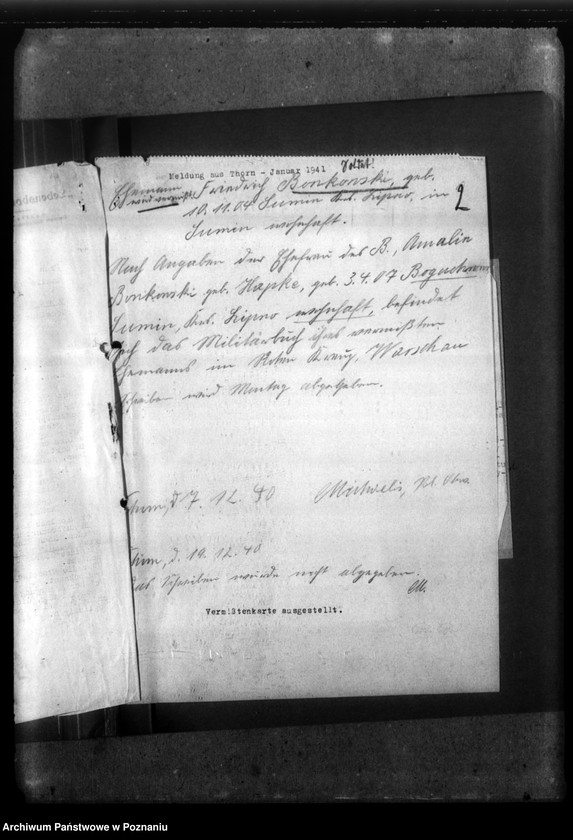 Meldung aus Thorn - Januar 1941 Soldat!
Ehemann Friedrich Bonkowski, geb.
wird vermißt 10.11.04 Sumin Krs. Lipno, in
2
Sumin wohnhaft.
Nach Angaben der Ehefrau des B., Amalie
Bonkowski geb. Hapke, geb. 3.4.07
Sumin, Krs. Lipno wohnhaft, befindet
sich das Militärbuch ihres vermißten
Ehemanns im Roten Kreuz, Warschau
Schreiben wird Montag abgegeben.
Thorn, d 7. 12. 40 Michaelis,
Thorn, d. 19. 12. 40
Das Schreiben wurde nicht abgegeben.
M.
Vermißtenkarte ausgestellt.
Archiwum Państwowe w Poznaniu